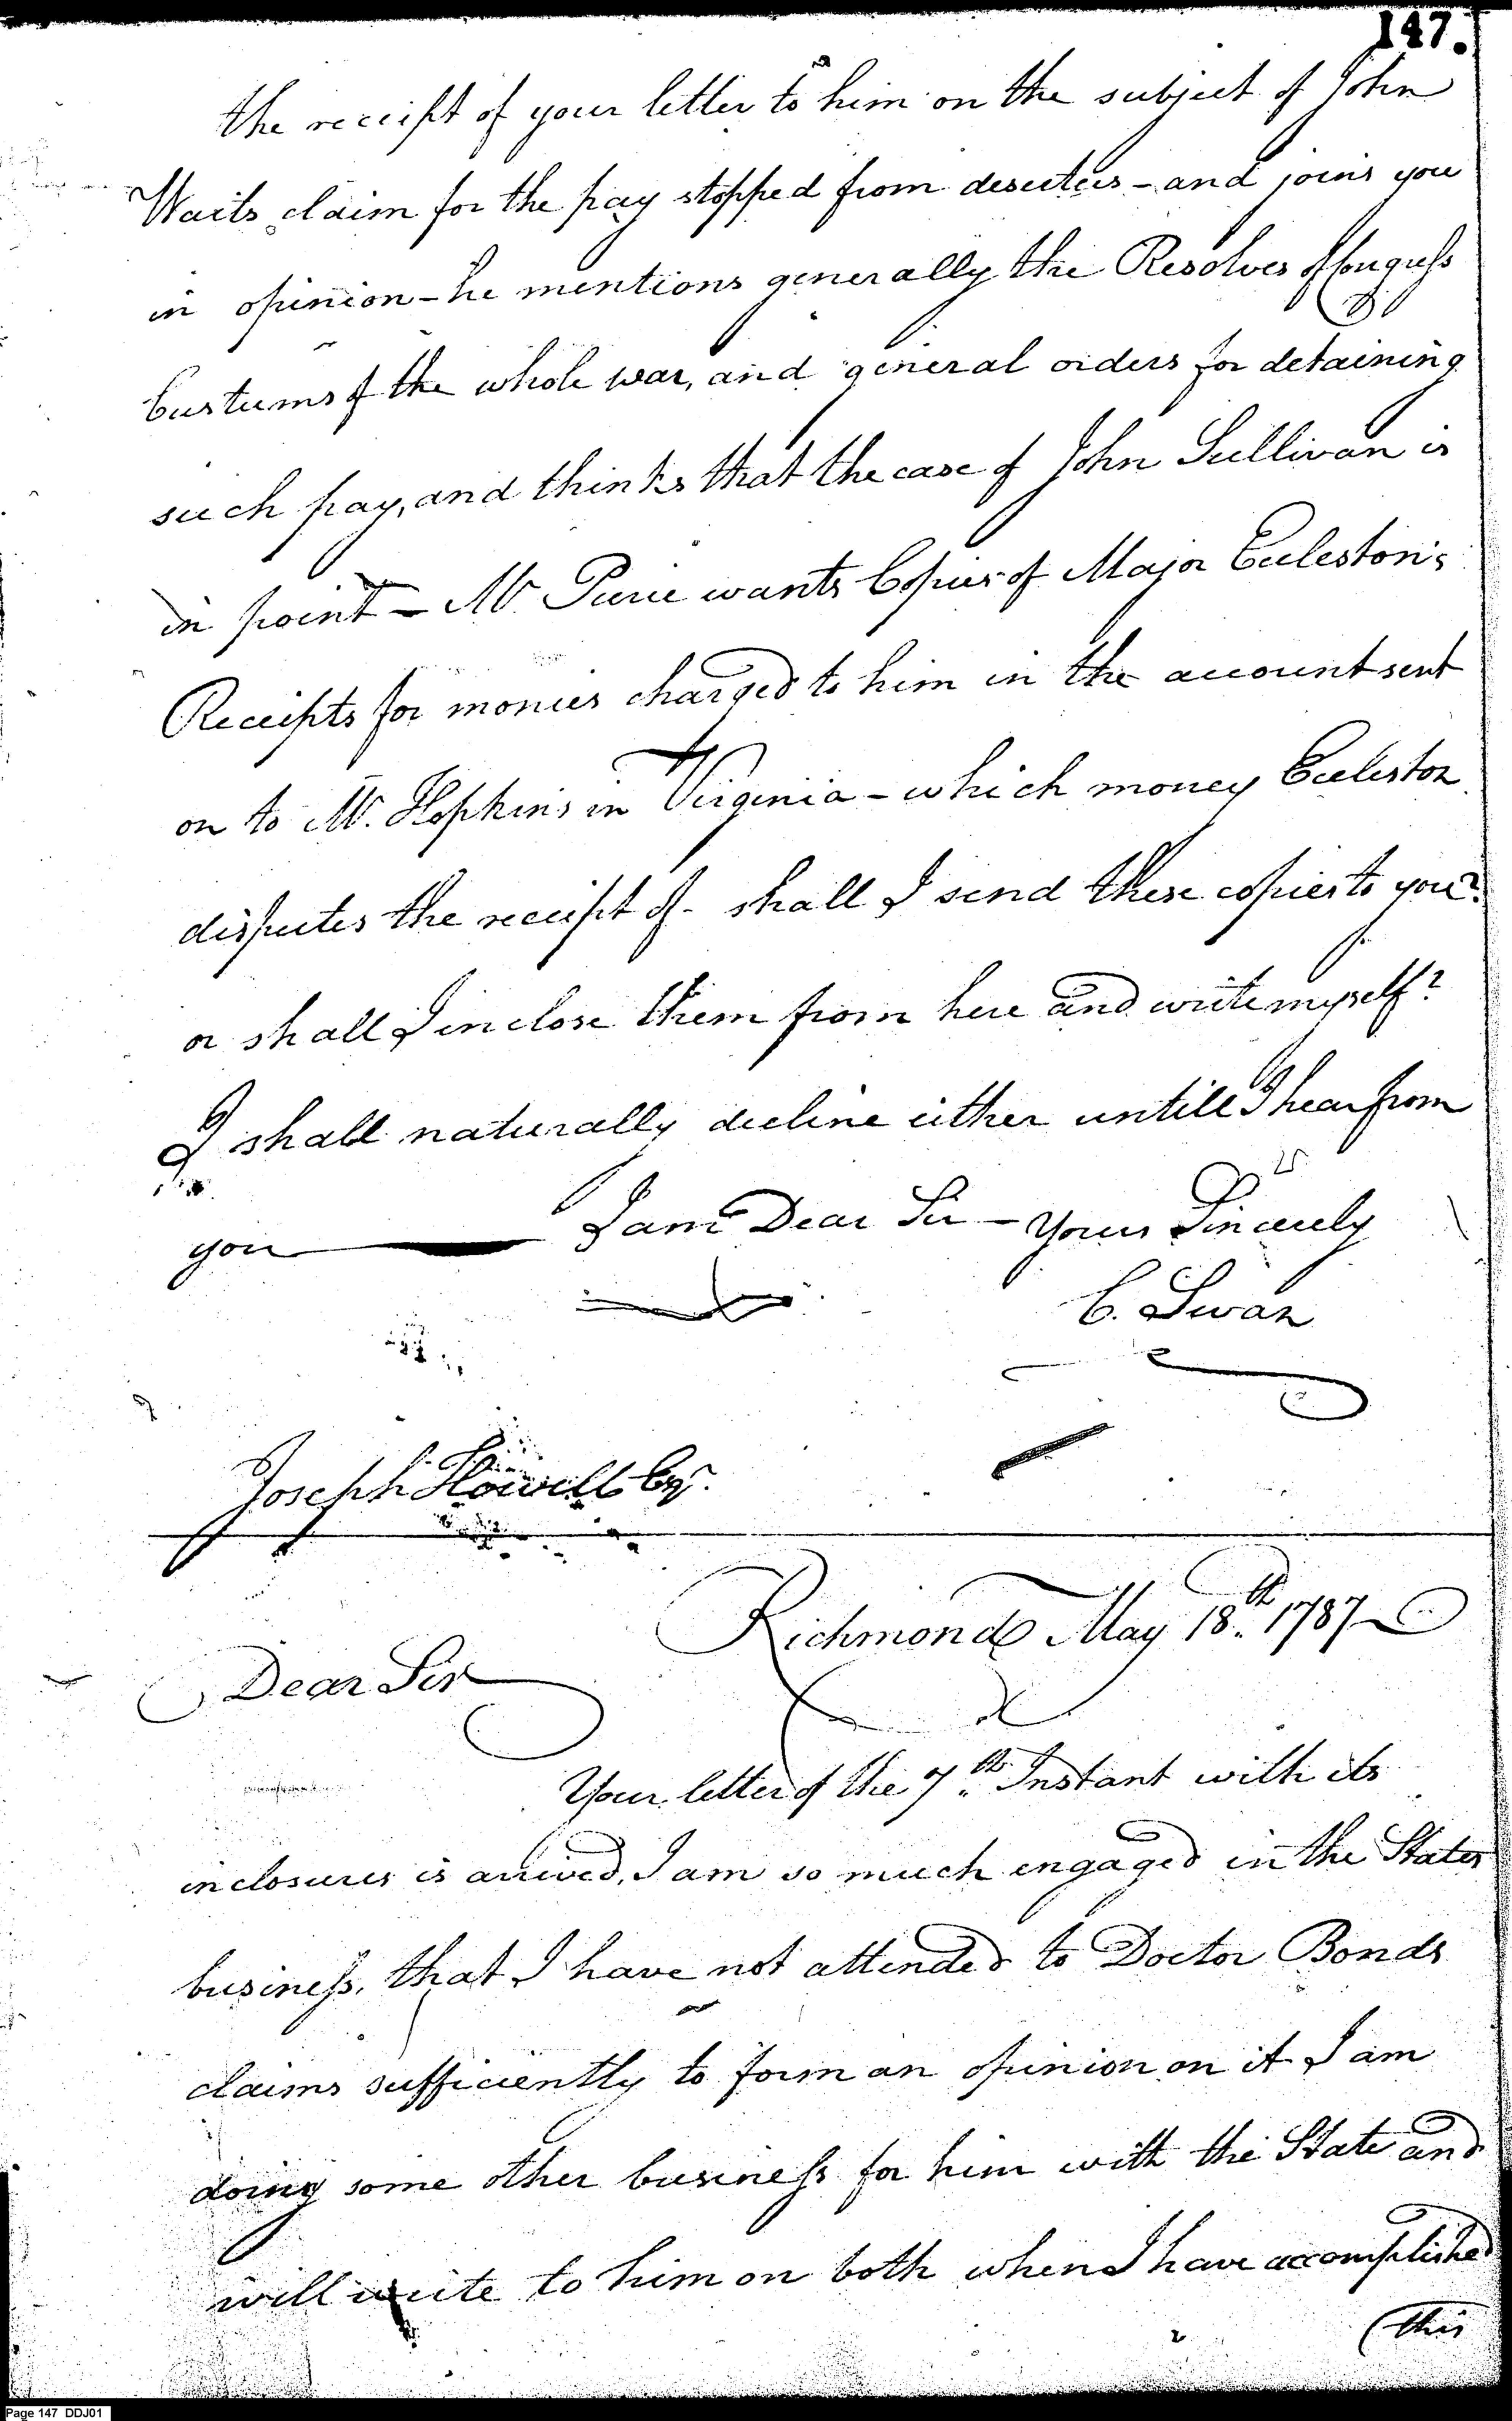 147.
the receipt of your letter to him on the subject of John
Waits claim for the pay stopped from deserters - and joins you
in opinion - he mentions generally the Resolves of Congress
Custums of the whole war, and general orders for detaining
such pay, and thinks that the case of John Sullivan is
in point - Mr. Purie wants Copies of Major Ecleston's
Receipts for monies charged to him in the account sent
on to Mr. Hopkins in Virginia - which money Ecleston
disputes the receipt of - shall I send these copies to you?
or shall I inclose them from here and write myself?
I shall naturally decline either untill I hear from
you — I am Dear Sir - Yours Sincerely
C. Swan
Joseph Howell Esqr.
Richmond May 18th. 1787
Dear Sir
Your letter of the 7th. Instant with its
inclosures is arrived, I am so much engaged in the States
business, that I have not attended to Doctor Bonds
claims sufficiently to form an opinion on it I am
doing some other business for him with the State and
will write to him on both when I have accomplished
(this
Page 147 DDJ01